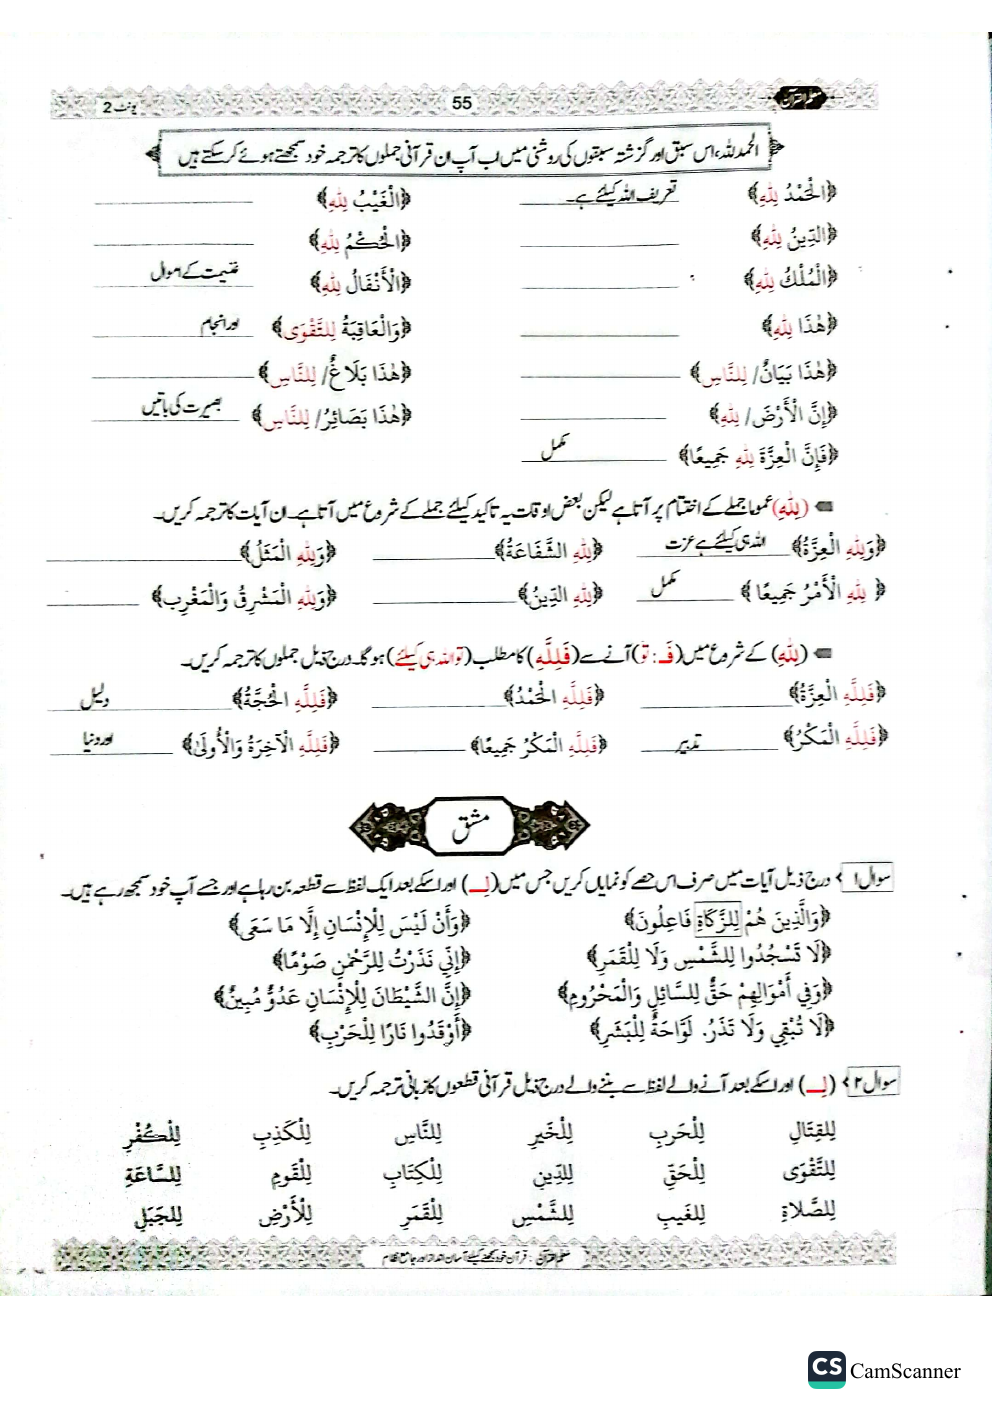 معلم القرآن 55 یونٹ 2
الحمدللہ، اس سبق اور گزشتہ سبقوں کی روشنی میں اب آپ ان قرآنی جملوں کا ترجمہ خود سمجھتے ہوئے کر سکتے ہیں
﴿الْحَمْدُ لِلّٰهِ﴾ تعریف اللہ کیلئے ہے۔ ﴿الْغَيْبُ لِلّٰهِ﴾
﴿الدِّينُ لِلّٰهِ﴾ ﴿الْحُكْمُ لِلّٰهِ﴾
﴿الْمُلْكُ لِلّٰهِ﴾ ﴿الْأَنْفَالُ لِلّٰهِ﴾ غنیمت کے اموال
﴿هٰذَا لِلّٰهِ﴾ ﴿وَالْعَاقِبَةُ لِلتَّقْوَى﴾ اور انجام
﴿هٰذَا بَيَانٌ/ لِلنَّاسِ﴾ ﴿هٰذَا بَلَاغٌ/ لِلنَّاسِ﴾
﴿إِنَّ الْأَرْضَ/ لِلّٰهِ﴾ ﴿هٰذَا بَصَائِرُ/ لِلنَّاسِ﴾ بصیرت کی باتیں
﴿فَإِنَّ الْعِزَّةَ لِلّٰهِ جَمِيعًا﴾ مکمل
(لِلّٰهِ) عموما جملے کے اختتام پر آتا ہے لیکن بعض اوقات یہ تاکید کیلئے جملے کے شروع میں آتا ہے۔ ان آیات کا ترجمہ کریں۔
﴿وَلِلّٰهِ الْعِزَّةُ﴾ اللہ ہی کیلئے ہے عزت ﴿لِلّٰهِ الشَّفَاعَةُ﴾ ﴿وَلِلّٰهِ الْمَثَلُ﴾
﴿لِلّٰهِ الْأَمْرُ جَمِيعًا﴾ مکمل ﴿لِلّٰهِ الدِّينُ﴾ ﴿وَلِلّٰهِ الْمَشْرِقُ وَالْمَغْرِب﴾
(لِلّٰهِ) کے شروع میں (فَـ : تو) آنے سے (فَلِلَّهِ) کا مطلب (تو اللہ ہی کیلئے) ہوگا۔ درج ذیل جملوں کا ترجمہ کریں۔
﴿فَلِلَّهِ الْعِزَّةُ﴾ ﴿فَلِلَّهِ الْحَمْدُ﴾ ﴿فَلِلَّهِ الْحُجَّةُ﴾ دلیل
﴿فَلِلَّهِ الْمَكْرُ﴾ تدبیر ﴿فَلِلَّهِ الْمَكْرُ جَمِيعًا﴾ ﴿فَلِلَّهِ الْآخِرَةُ وَالْأُولَىٰ﴾ اور دنیا
مشق
سوال ۱ درج ذیل آیات میں صرف اس حصے کو نمایاں کریں جس میں (لِـــ) اور اسکے بعد ایک لفظ سے قطعہ بن رہا ہے اور جسے آپ خود سمجھ رہے ہیں۔
﴿وَالَّذِينَ هُمْ لِلزَّكَاةِ فَاعِلُونَ﴾ ﴿وَأَنْ لَيْسَ لِلْإِنْسَانِ إِلَّا مَا سَعَى﴾
﴿لَا تَسْجُدُوا لِلشَّمْسِ وَلَا لِلْقَمَرِ﴾ ﴿إِنِّي نَذَرْتُ لِلرَّحْمٰنِ صَوْمًا﴾
﴿وَفِي أَمْوَالِهِمْ حَقٌّ لِلسَّائِلِ وَالْمَحْرُومِ﴾ ﴿إِنَّ الشَّيْطَانَ لِلْإِنْسَانِ عَدُوٌّ مُبِينٌ﴾
﴿لَا تُبْقِي وَلَا تَذَرُ. لَوَّاحَةٌ لِلْبَشَرِ﴾ ﴿أَوْقَدُوا نَارًا لِلْحَرْبِ﴾
سوال ۲ (لِـــ) اور اسکے بعد آنے والے لفظ سے بننے والے درج ذیل قرآنی قطعوں کا زبانی ترجمہ کریں۔
لِلقِتَالِ لِلْحَربِ لِلْخَيرِ لِلنَّاسِ لِلْكَذِبِ لِلْكُفْرِ
لِلتَّقْوَى لِلْحَقِّ لِلدِّينِ لِلْكِتَابِ لِلْقَومِ لِلسَّاعَةِ
لِلصَّلاةِ لِلغَيبِ لِلشَّمْسِ لِلْقَمَرِ لِلْأَرْضِ لِلجَبَلِ
معلم القرآن : قرآن خود سمجھنے کیلئے آسان انداز اور جامع نظام
CS CamScanner